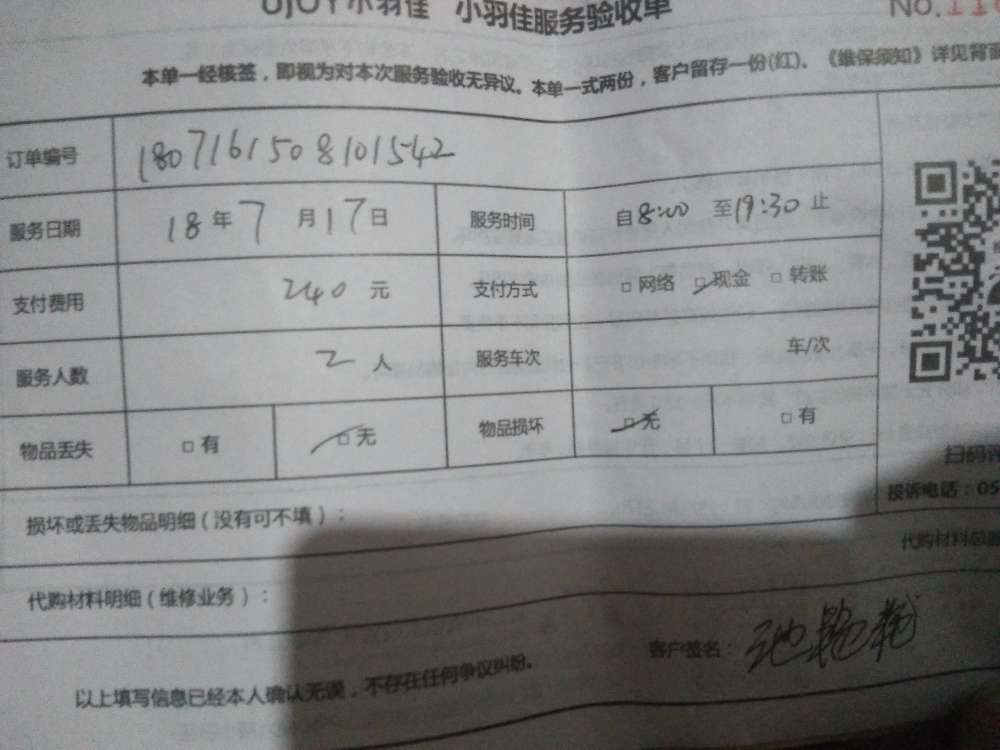 UJOY小羽佳 小羽佳服务验收单 No.11
本单一经核签，即视为对本次服务验收无异议。本单一式两份，客户留存一份(红)。《维保须知》详见背面
订单编号 1807161508101542
服务日期 18年7月17日 服务时间 自8:00至19:30止
支付费用 240元 支付方式 □网络 □现金 □转账
服务人数 2人 服务车次 车/次
物品丢失 □有 □无 物品损坏 □无 □有
扫码
投诉电话：05
损坏或丢失物品明细（没有可不填）：
代购材料总
代购材料明细（维修业务）：
客户签名：池艳
以上填写信息已经本人确认无误，不存在任何争议纠纷。